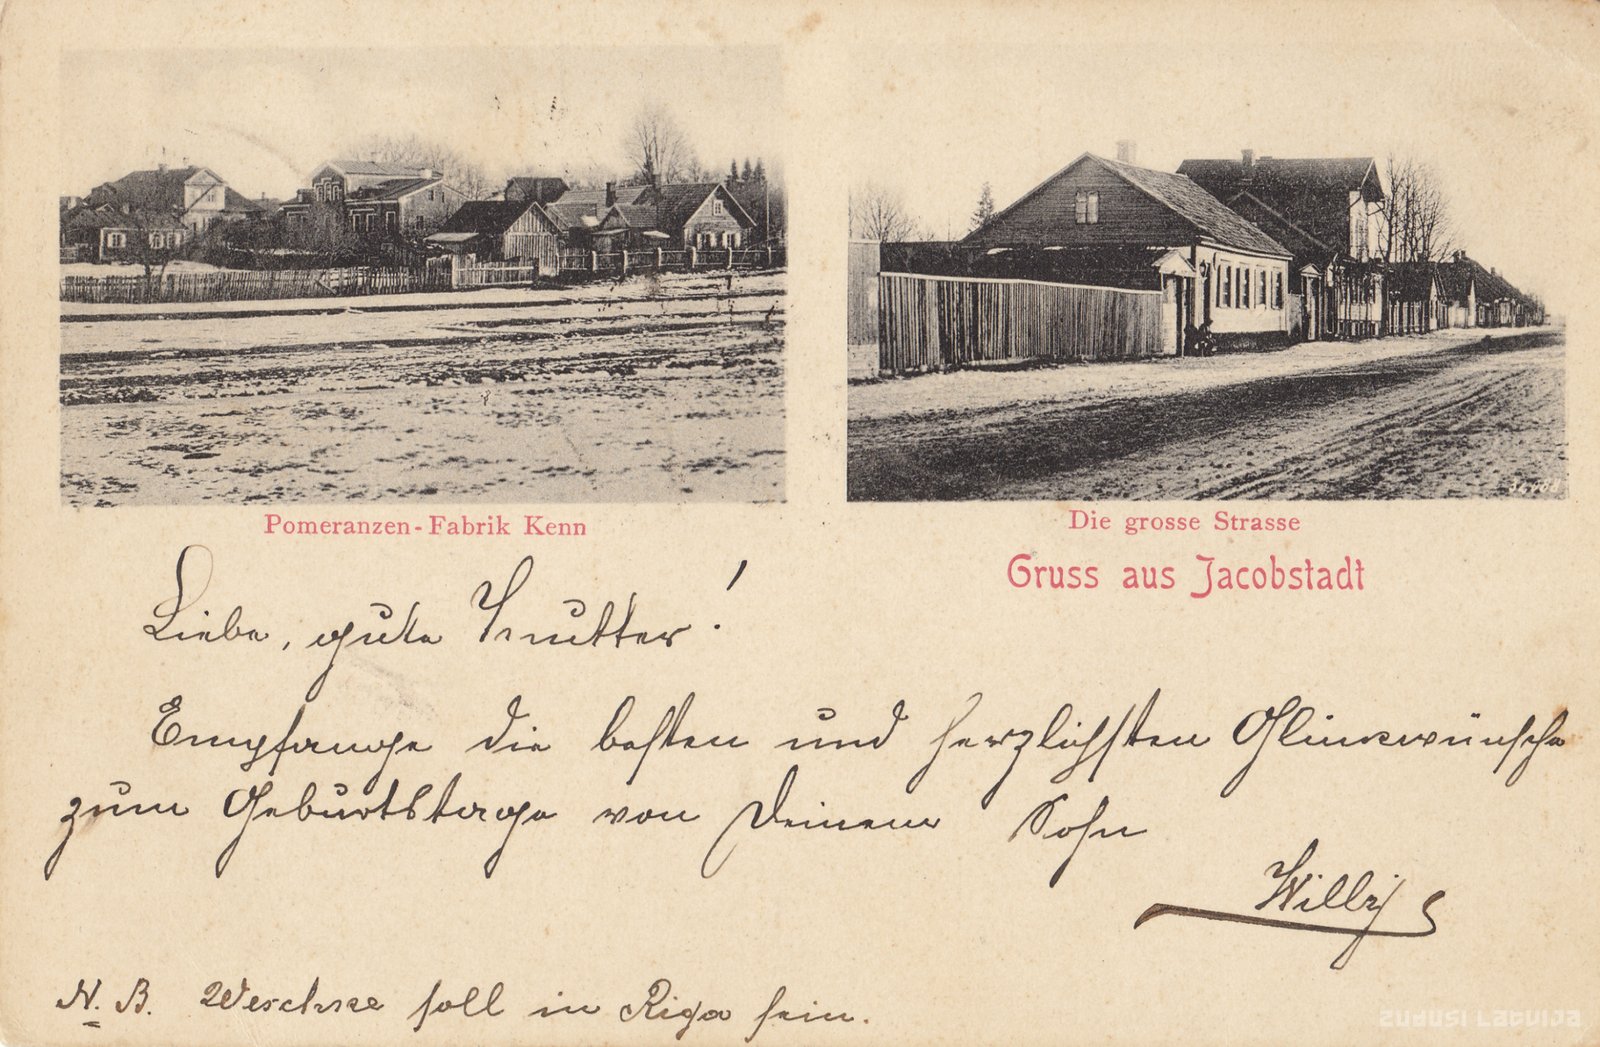 Pomeranzen-Fabrik Kenn
Die grosse Strasse
Gruss aus Jacobstadt
Liebe, gute Mutter!
Empfange die besten und herzlichsten Glückwünsche
zum Geburtstage von Deinem Sohn
Willy
N. B. soll in Riga sein.
zudusi Latvija